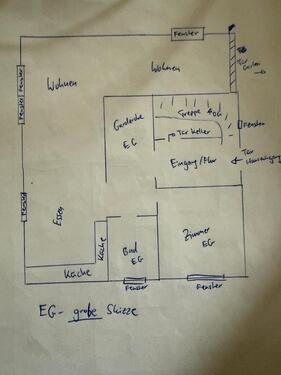 Fenster
Tür
Garten
Wohnen
Wohnen
Fenster
Fenster
Garderobe
EG
Treppe 1.OG
Tür Keller
Fenster
Eingang/Flur
Tür
Hauseingang
Fenster
Essen
Küche
Bad
EG
Zimmer
EG
Küche
Fenster
Fenster
EG - grobe Skizze